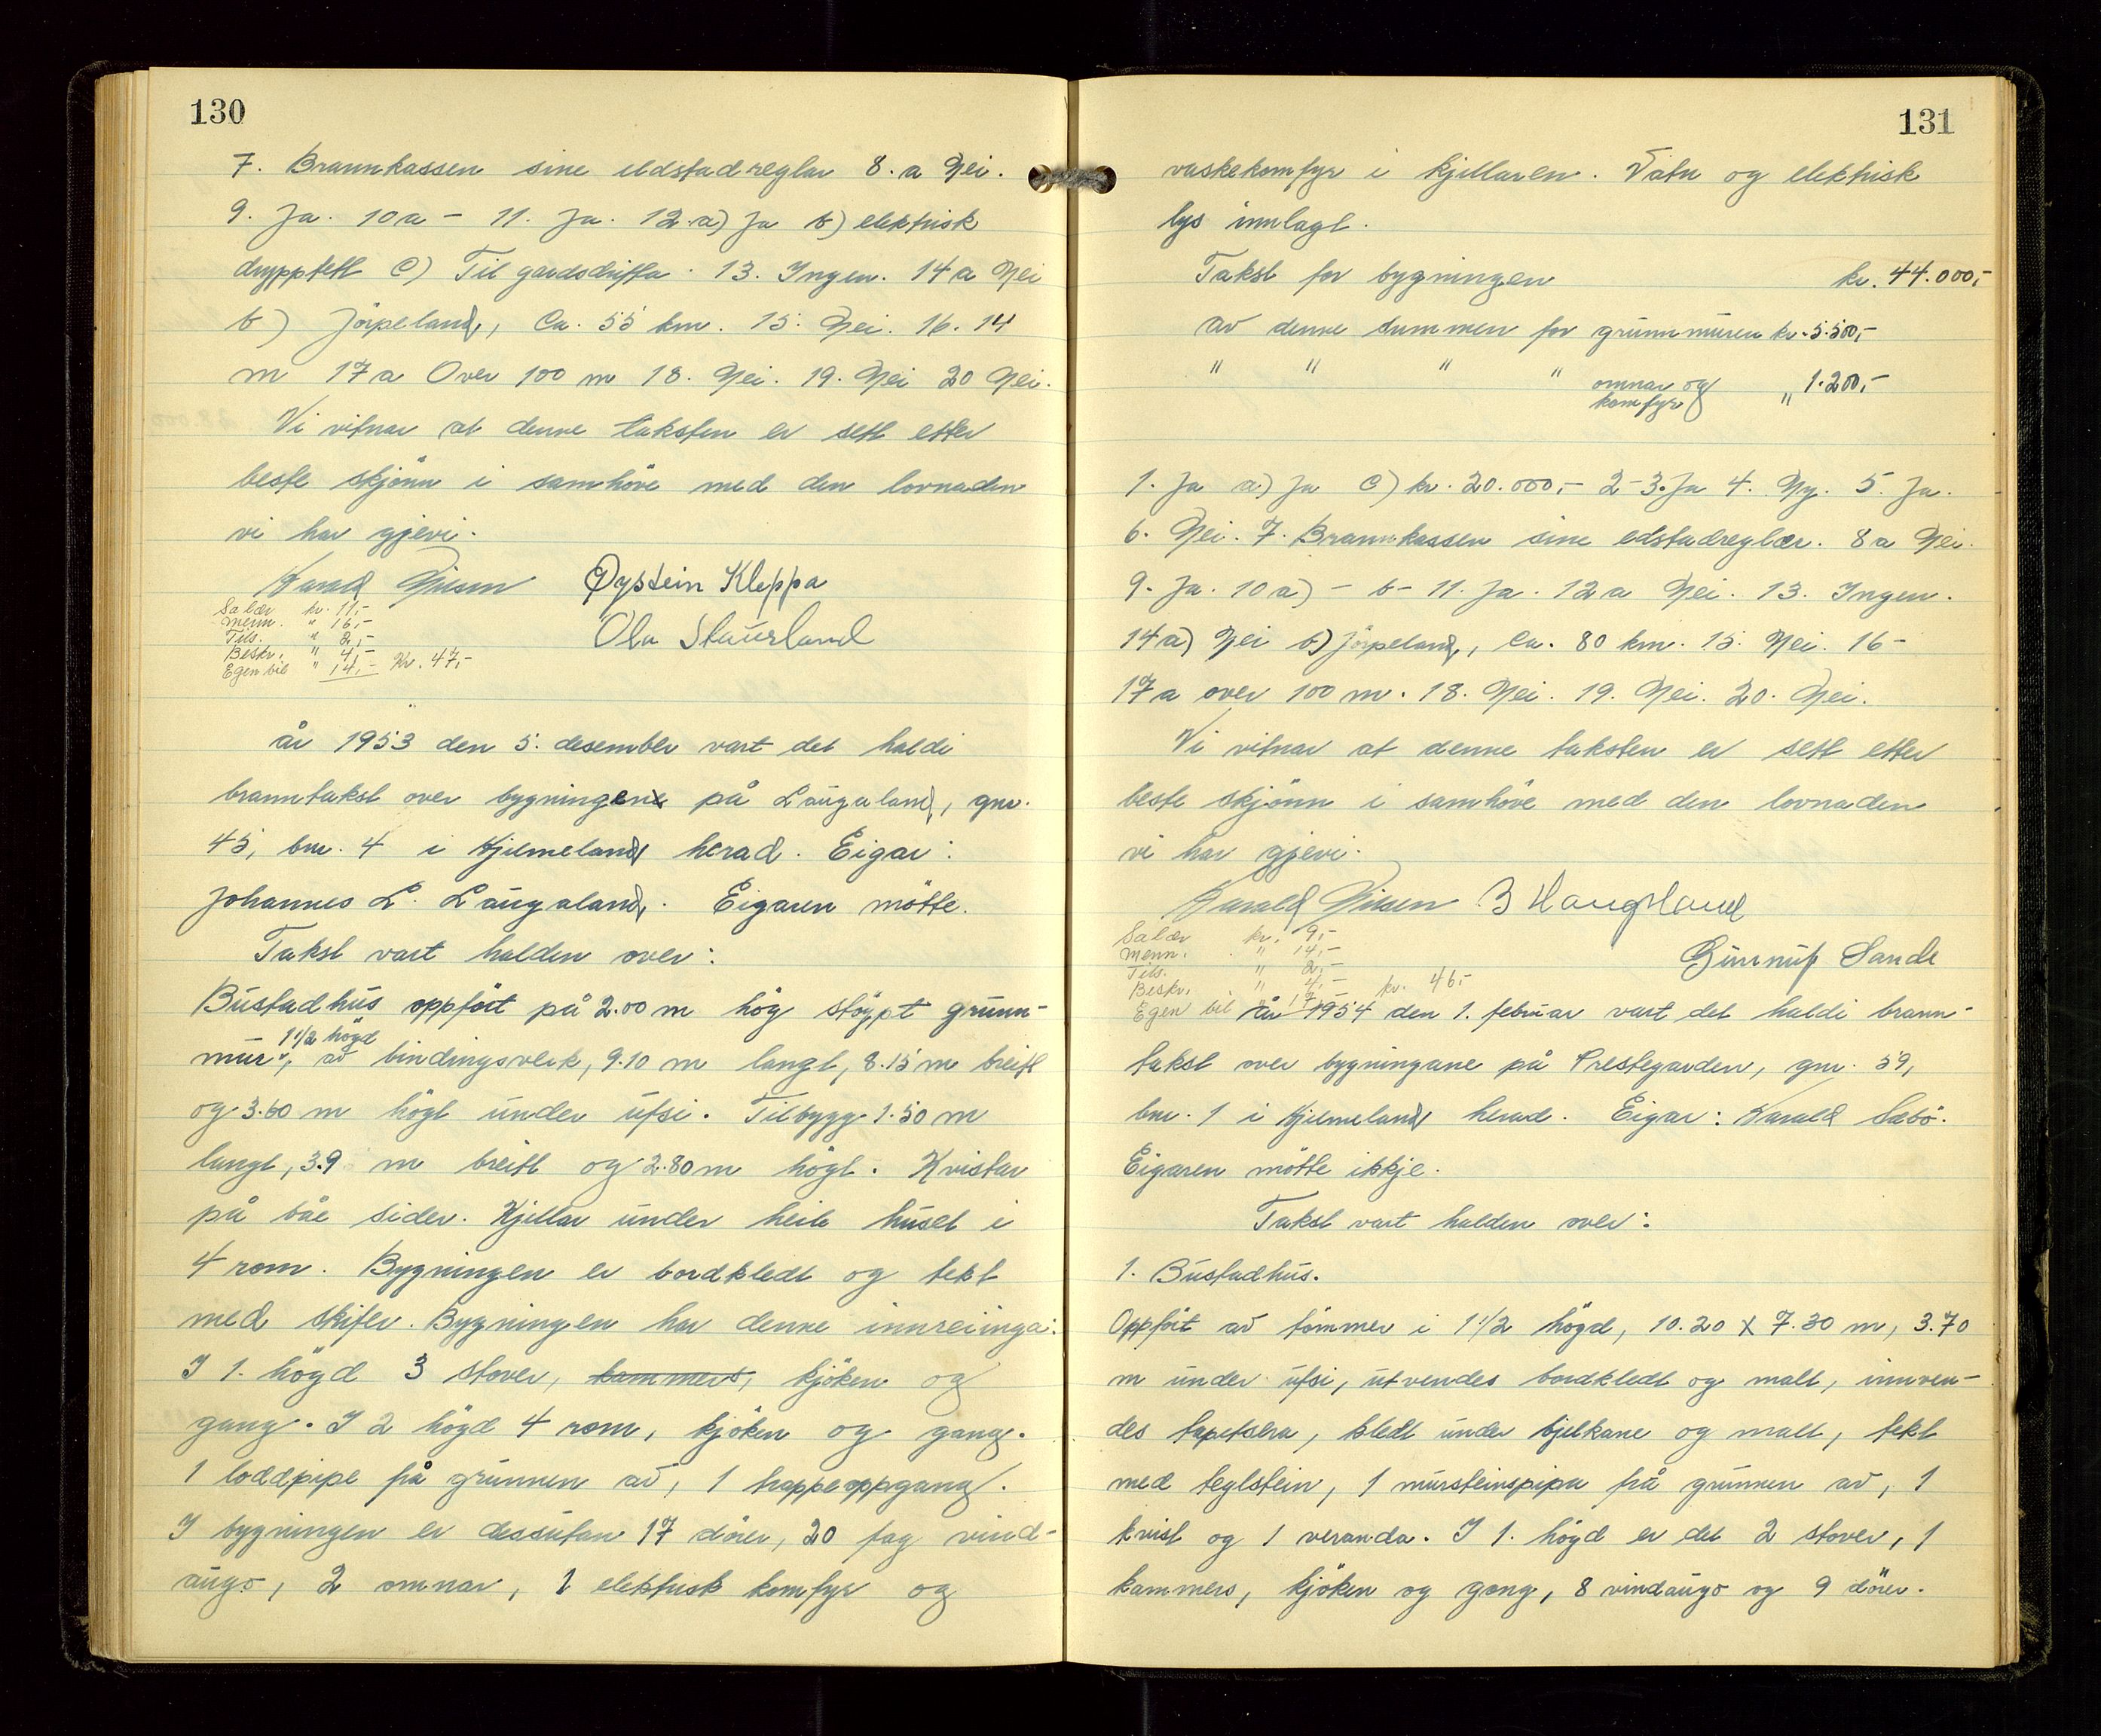 130
7. Brannkassen sine eldstadreglar 8. a Nei.
9. Ja. 10a – 11. Ja. 12.a) Ja b) elektrisk
drypptett c) Til gardsdrifta. 13. Ingen. 14a Nei
b) Jörpeland, Ca. 55 km. 15. Nei. 16. 14
m 17a Over 100 m 18. Nei. 19. Nei 20 Nei.
Vi vitnar at denne taksten er sett etter
beste skjönn i samhöve med den lovnaden
vi har gjevi.
Harald Nilsen Øystein Kleppa
Salær kr. 11,-
Menn. " 16,- Ola Staursland
Tils. " 2,-
Beskr. " 4,-
Egen bil " 14,- Kr. 47,-
år 1953 den 5. desember vart det haldi
branntakst over bygningene på Laugaland, gnr.
45, bnr. 4 i Hjelmeland herad. Eigar:
Johannes L. Laugaland. Eigaren mötte.
Takst vart halden over:
Bustadhus oppfört på 2.00 m hög stöypt grunn-
1 1/2 högd
mur, av bindingsverk, 9.10 m langt, 8.15 m breitt
og 3.60 m högt under ufsi. Tilbygg 1.50 m
langt, 3.9 m breitt og 2.80 m högt. Kvistar
på båe sider. Kjellar under heile huset i
4 rom. Bygningen er bordkledt og tekt
med skifer. Bygningen har denne innreiinga:
I 1. högd 3 stover, kammers, kjöken og
gang. I 2 högd 4 rom, kjöken og gang.
1 loddpipe frå grunnen av, 1 trappeoppgang.
I bygningen er dessutan 17 dörer, 20 fag vind-
augo, 2 omnar, 1 elektrisk komfyr og
131
vaskekomfyr i kjellaren. Vatn og elektrisk
lys innlagt.
Takst for bygningen kr. 44.000,-
Av denne summen for grunnmuren kr. 5.500,-
" " " " omnar og
komfyr " 1.200,-
1. Ja a) Ja c) kr. 20.000,- 2-3. Ja 4. Ny. 5. Ja.
6. Nei. 7. Brannkassen sine eldstadreglar. 8a Nei.
9. Ja. 10a) – b – 11. Ja. 12a Nei. 13. Ingen.
14a) Nei b) Jörpeland, Ca. 80 km. 15. Nei. 16 –
17a over 100 m. 18. Nei. 19. Nei. 20. Nei.
Vi vitnar at denne taksten er sett etter
beste skjönn i samhöve med den lovnaden
vi har gjevi.
Harald Nilsen B Haugsland
Salær kr. 9,-
Menn. " 14,- Gunnulf Sande
Tils. " 2,-
Beskr. " 4,- kr. 46,-
Egen bil " 17,-
år 1954 den 1. februar vart det haldi brann-
takst over bygningane på Prestegarden, gnr. 59,
bnr. 1 i Hjelmeland herad. Eigar: Harald Sæbö.
Eigaren mötte ikkje.
Takst vart halden over:
1. Bustadhus.
Oppfört av tömmer i 1 1/2 högd, 10.20 x 7.30 m, 3.70
m under ufsi, utvendes bordkledt og malt, innven-
des tapetsera, kledt under bjelkane og malt, tekt
med teglstein, 1 mursteinspipa frå grunnen av, 1
kvist og 1 veranda. I 1. högd er det 2 stover, 1
kammers, kjöken og gang, 8 vindaugo og 9 dörer.